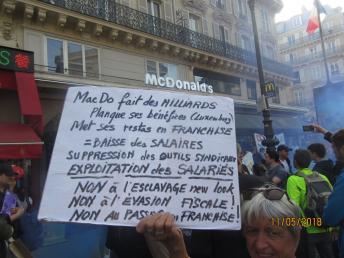 McDonald's
MacDo fait des MILLIARDS
Planque ses bénéfices (Luxembourg)
Met ses restos en FRANCHISE
= BAISSE des SALAIRES
SUPPRESSION des OUTILS SYNDICAUX
EXPLOITATION des SALARIÉS
NON à l'ESCLAVAGE new look
NON à L'EVASION FISCALE !
NON AU PASSAGE en FRANCHISE !
11/05/2018